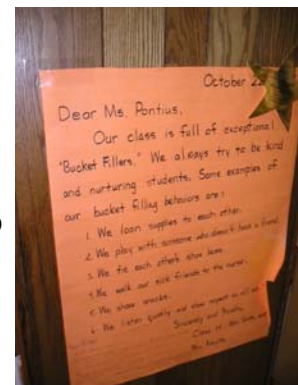 October 2
Dear Ms. Pontius,
Our class is full of exceptional
"Bucket Fillers." We always try to be kind
and nurturing students. Some examples of
our bucket filling behaviors are:
1. We loan supplies to each other.
2. We play with someone who doesn't have a friend.
3. We tie each other's shoe laces.
4. We walk our sick friends to the nurse.
5. We share snacks.
6. We listen quietly and show respect to all
Sincerely and
Class of